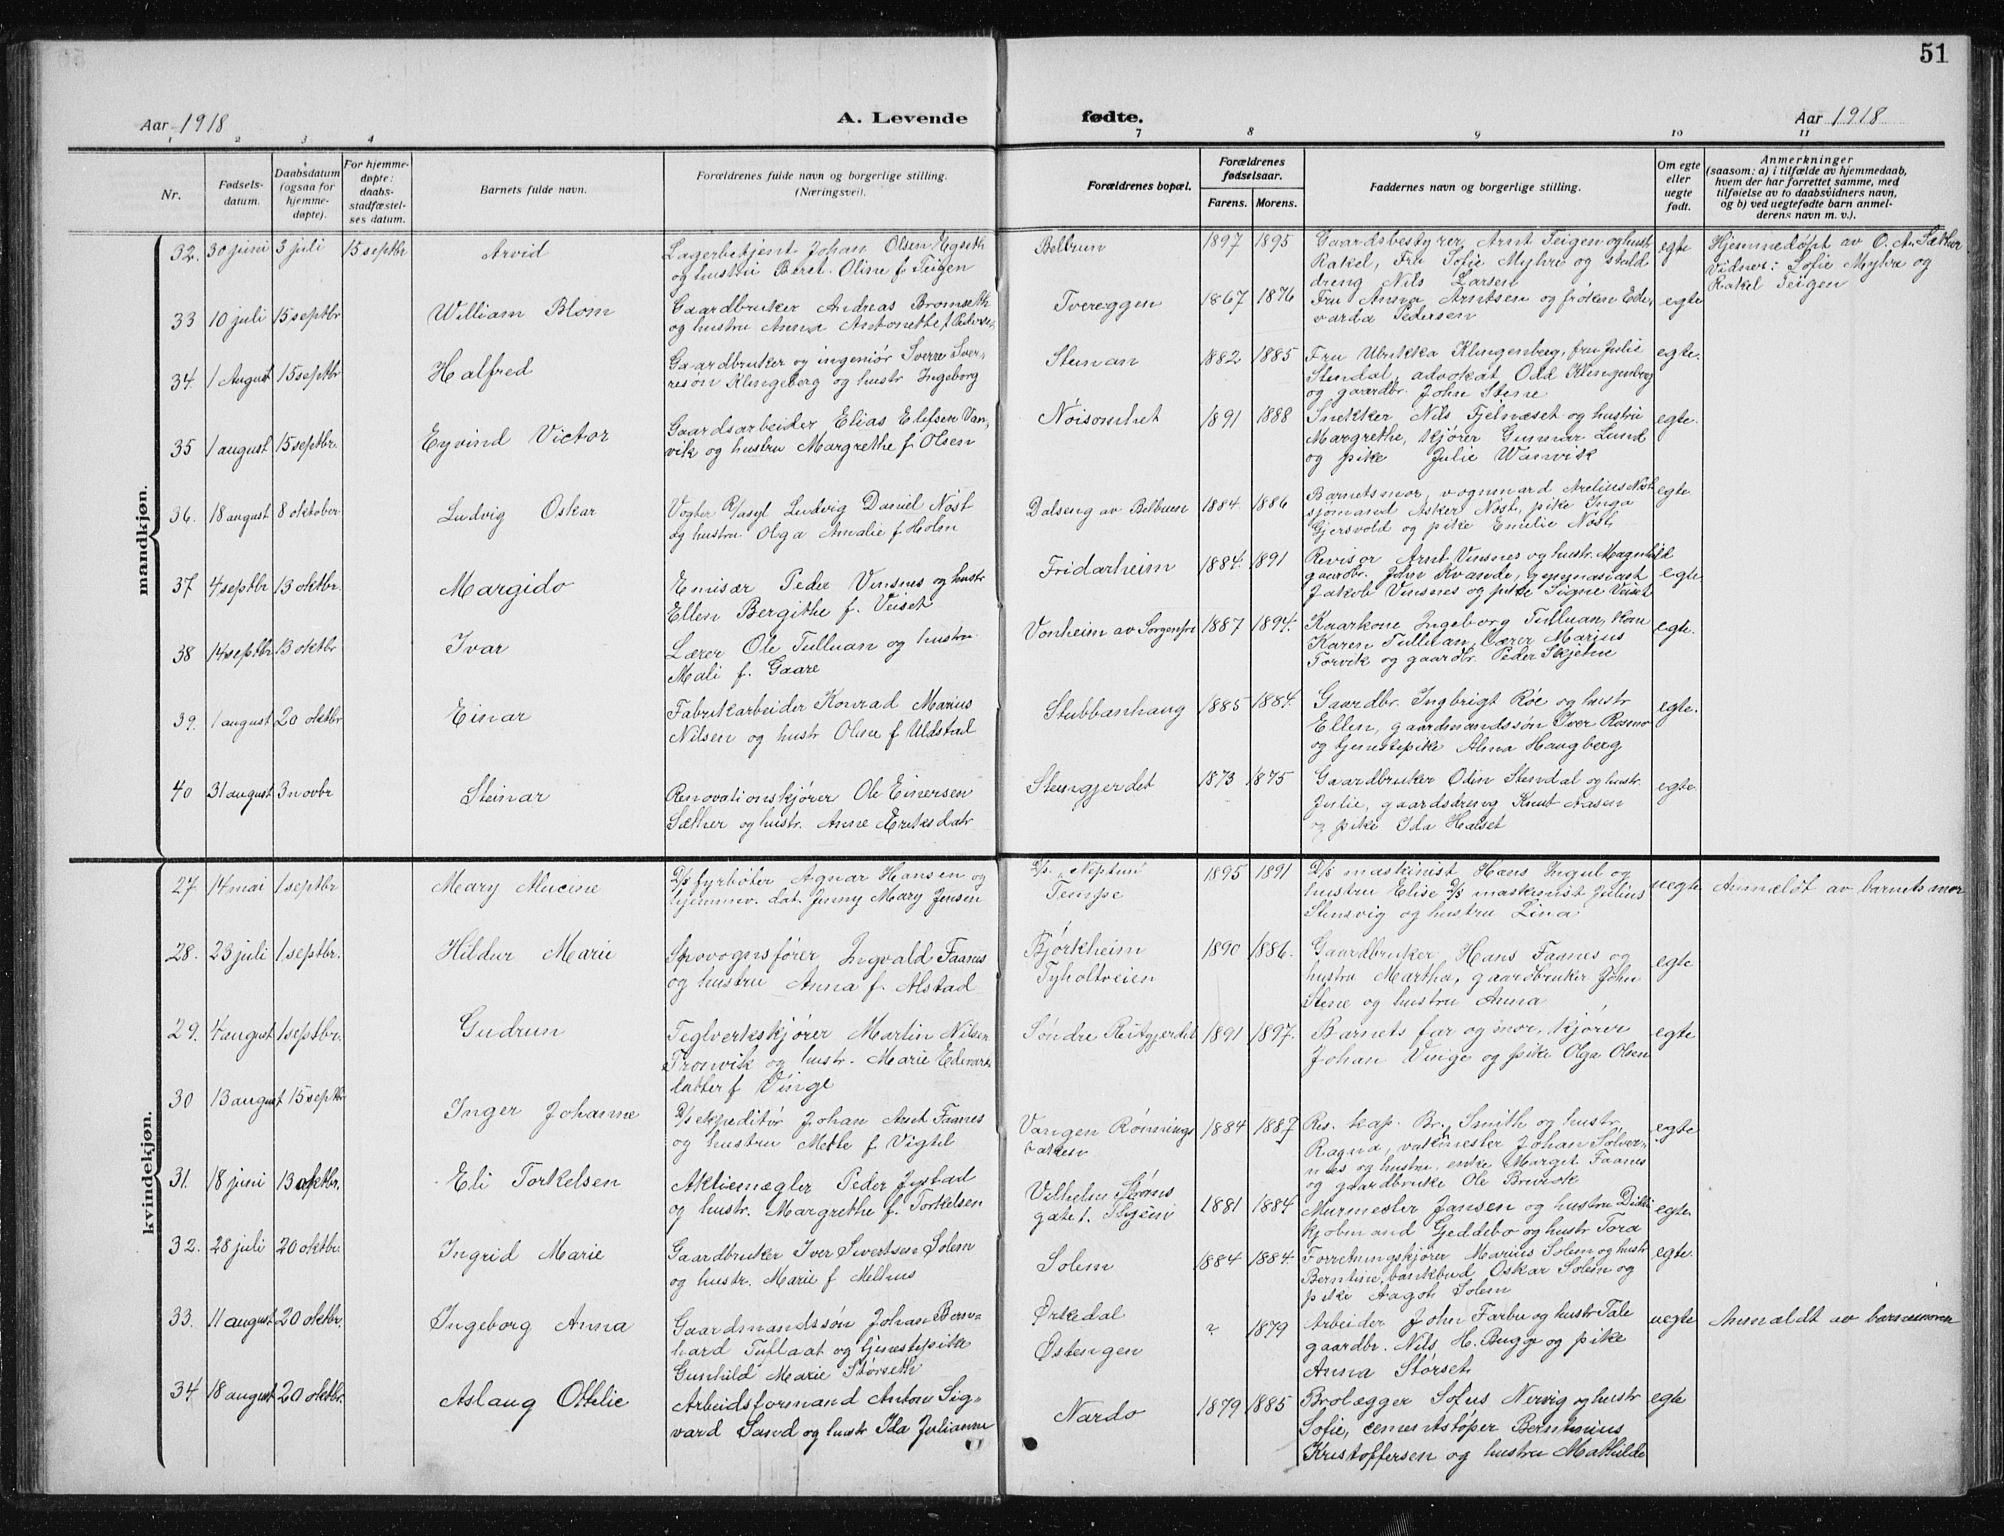 51
Aar 1918
A. Levende
fødte.
Aar 1918
1 2 3 4 7 8 9 10 11
Nr.
Fødsels-
datum.
Daabsdatum
(ogsaa for
hjemme-
døpte).
For hjemme-
døpte:
daabs-
stadfæstel-
ses datum.
Barnets fulde navn.
Forældrenes fulde navn og borgerlige stilling.
(Næringsvei).
Forældrenes bopæl.
Forældrenes
fødselsaar.
Farens. Morens.
Faddernes navn og borgerlige stilling.
Om egte
eller
uegte
født.
Anmerkninger
(saasom: a) i tilfælde av hjemmedaab,
hvem der har forrettet samme, med
tilføielse av to daabsvidners navn,
og b) ved uegtefødte barn anmel-
derens navn m. v.).
mandkjøn.
32. 30 juni 3 juli 15 septbr Arvid
Lagerbetjent Johan Olsen Egseth
og hustru Beret Oline f. Teigen
Belbuan 1897 1895
Gaardsbestyrer Arnt Teigen og hust
Rakel, Fru Sofie Myhre og stald
dreng Nils Larsen
egte
Hjemmedøpt av O. A. Sæther
Vidner: Sofie Myhre og
Rakel Teigen
33 10 juli 15 septbr William Blom
Gaardbruker Andreas Bromseth
og hustru Anna Antonette f. Peders
Tvereggen 1867 1876
Fru Anna Arntsen og frøken Ed
varda Pedersen
egte
34. 1 August 15 septbr Halfred
Gaardbruker og ingeniør Sverre Sver-
resøn Klingeberg og hustr Ingeborg
Stenan 1882 1885
Fru Ulrikka Klingenberg, fru Julie
Stendal, advokat Odd Klingenberg
og gaardbr. John Stene
egte.
35 1 august 15 septbr. Eyvind Victor
Gaardsarbeider Elias Elefsen Van-
vik og hustru Margrethe f. Olsen
Nøisomhet 1891 1888
Snekker Nils Fjelnæset og hustru
Margrethe, kjører Gunnar Lund
og pike Julie Wanvik
egte.
36. 18 august 8 oktober Ludvig Oskar
Vogter R/asyl Ludvig Daniel Nøst
og hustru Olga Amalie f Holm
Dalseng av Belbuan 1884 1886
Barnets mor, vognmand Arelius Nøst
sjømand Asker Nøst, pike Inga
Gjersvold og pike Emelie Nøst
egte
37 4 septbr 13 oktbr. Margido
Emisær Peder Vinsnes og hustr
Ellen Bergithe f. Veiset
Fridarheim 1884. 1891
Revisor Arnt Vinsnes og hustr. Magnhild
gaardbr. John Kvande, gymnasiast
Jakob Vinsnes og pike Signe Veiset
egte
38 14 septbr 13 oktbr Ivar
Lærer Ole Tulluan og hustru
Mali f. Gaare
Vonheim av Sorgenfri 1887 1894.
Kaarkone Ingeborg Tulluan, kone
Karen Tulluan, Lærer Marius
Torvik og gaardbr. Peder Skjetne
egte.
39. 1 august 20 oktbr Einar
Fabrikarbeider Konrad Marius
Nilsen og hustr Oline f Uldstad
Stubbanhaug 1885 1884.
Gaardbr. Ingbrigt Røe og hustr
Ellen, gaardmandssøn Iver Rosmo
og tjenestepike Alma Haugberg
egte.
40 31 august 3 novbr Steinar
Renovationskjører Ole Einersen
Sæther og hustr. Anne Eriksdatr
Stengjerdet 1873 1875
Gaardbruker Odin Stendal og hustr.
Julie, gaardsdreng Knut Aasen
og pike Ida Halset
egte.
kvindekjøn.
27. 14 mai 1 septbr Mary Alucine
D/s fyrbøter Agnar Hansen og
hjemmev. dat. Jenny Mary Jensen
D/s. "Neptun"
Tempe 1895 1891
D/s maskinist Hans Ingul og
hustru Elise D/s maskinist Julius
Stensvig og hustru Lina
uegte
Anmeldt av barnets mor
28. 23 juli 1 septbr. Hildur Marie
Sporvognsfører Ingvald Faanes
og hustru Anna f. Alstad
Bjørkheim
Tyholtveien 1890 1886.
Gaardbruker Hans Faanes og
hustru Martha, gaardbruker John
Stene og hustru Anna
egte
29. 4 august 1 septbr. Gudrun
Teglverkskjører Martin Nilsen
Tronvik og hustr. Marie Edvards
datter f Vinge
Søndre Reitgjerdet 1891 1897.
Barnets far og mor, kjører
Johan Vinge og pike Olga Olsen
egte
30 13 august 15 septbr Inger Johanne
D/s ekspeditør Johan Arnt Faanes
og hustru Mette f Vigtil
Vangen Rønnings
bakken 1884 1887
Res. kap. Br. Smith og hustr.
Ragna, vakmester Johan Solver
nes og hustru, enke Margit Faanes
og gaardbruke Ole Brevik
egte
31. 18 juni 13 oktbr. Eli Torkelsen
Aktiemægler Peder Jystad
og hustr. Margrethe f. Torkelsen
Vilhelm Storms
gate 1. Thjem 1881 1884
Murmester Jansen og hustru
kjøbmand Geddebo og hustr Tora
egte.
32. 28 juli 20 oktbr. Ingrid Marie
Gaardbruker Iver Sivertsen Solem
og hustr. Marie f Melhus
Solem 1884 1884.
Forretningskjører Marius Solem og hustr
Berntine, bankbud Oskar Solem og
pike Aagot Solem
egte.
33. 11 august 20 oktbr. Ingeborg Anna
Gaardmandssøn Johan Bern-
hard Tuflaat og tjenestepike
Gunhild Marie Størseth
Ørkedal
Østengen ? 1879
Arbeider John Farbu og hustr Tale
gaardbr. Nils H. Bugge og pike
Anna Størset
uegte
Anmeldt av barnemoren
34 18 august 20 oktbr. Aslaug Ottelie
Arbeidsformand Anton Sig-
vard Sand og hustr Ida Julianne
Nardo 1879 1885
Brolægger Sofus Nervig og hustr
Sofie, cementstøper Berntinius
Kristoffersen og hustru Mathilde
egte